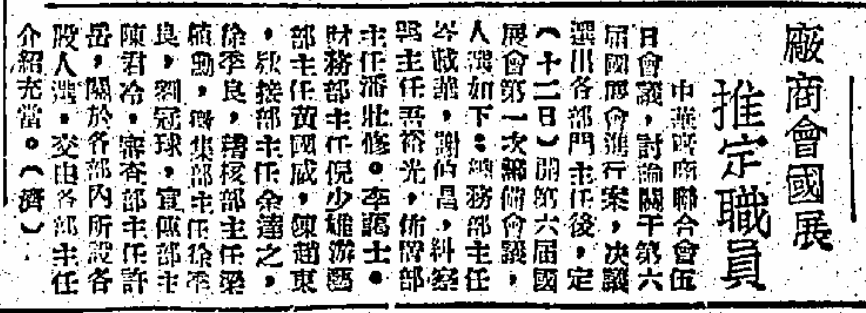 廠商會國展
推定職員
中華廠商聯合會五
日會議，討論關于第六
屆國展會進行案，决議
選出各部門主任後，定
（十二日）開第六屆國
展會第一次籌備會議，
人選如下：總務部主任
岑載華，謝伯昌，糾察
部主任吾裕光，佈置部
主任潘壯修。李藹士。
財務部主任倪少雄游藝
部主任黃國威，陳趙東
，欵接部主任余達之，
徐季良，稽核部主任梁
勳，徵集部主任徐季
良，劉冠球，宣傳部主
陳君冷，審查部主任許
岳，關於各部內所設各
股人選，交由各部主任
介紹充當。（濟）